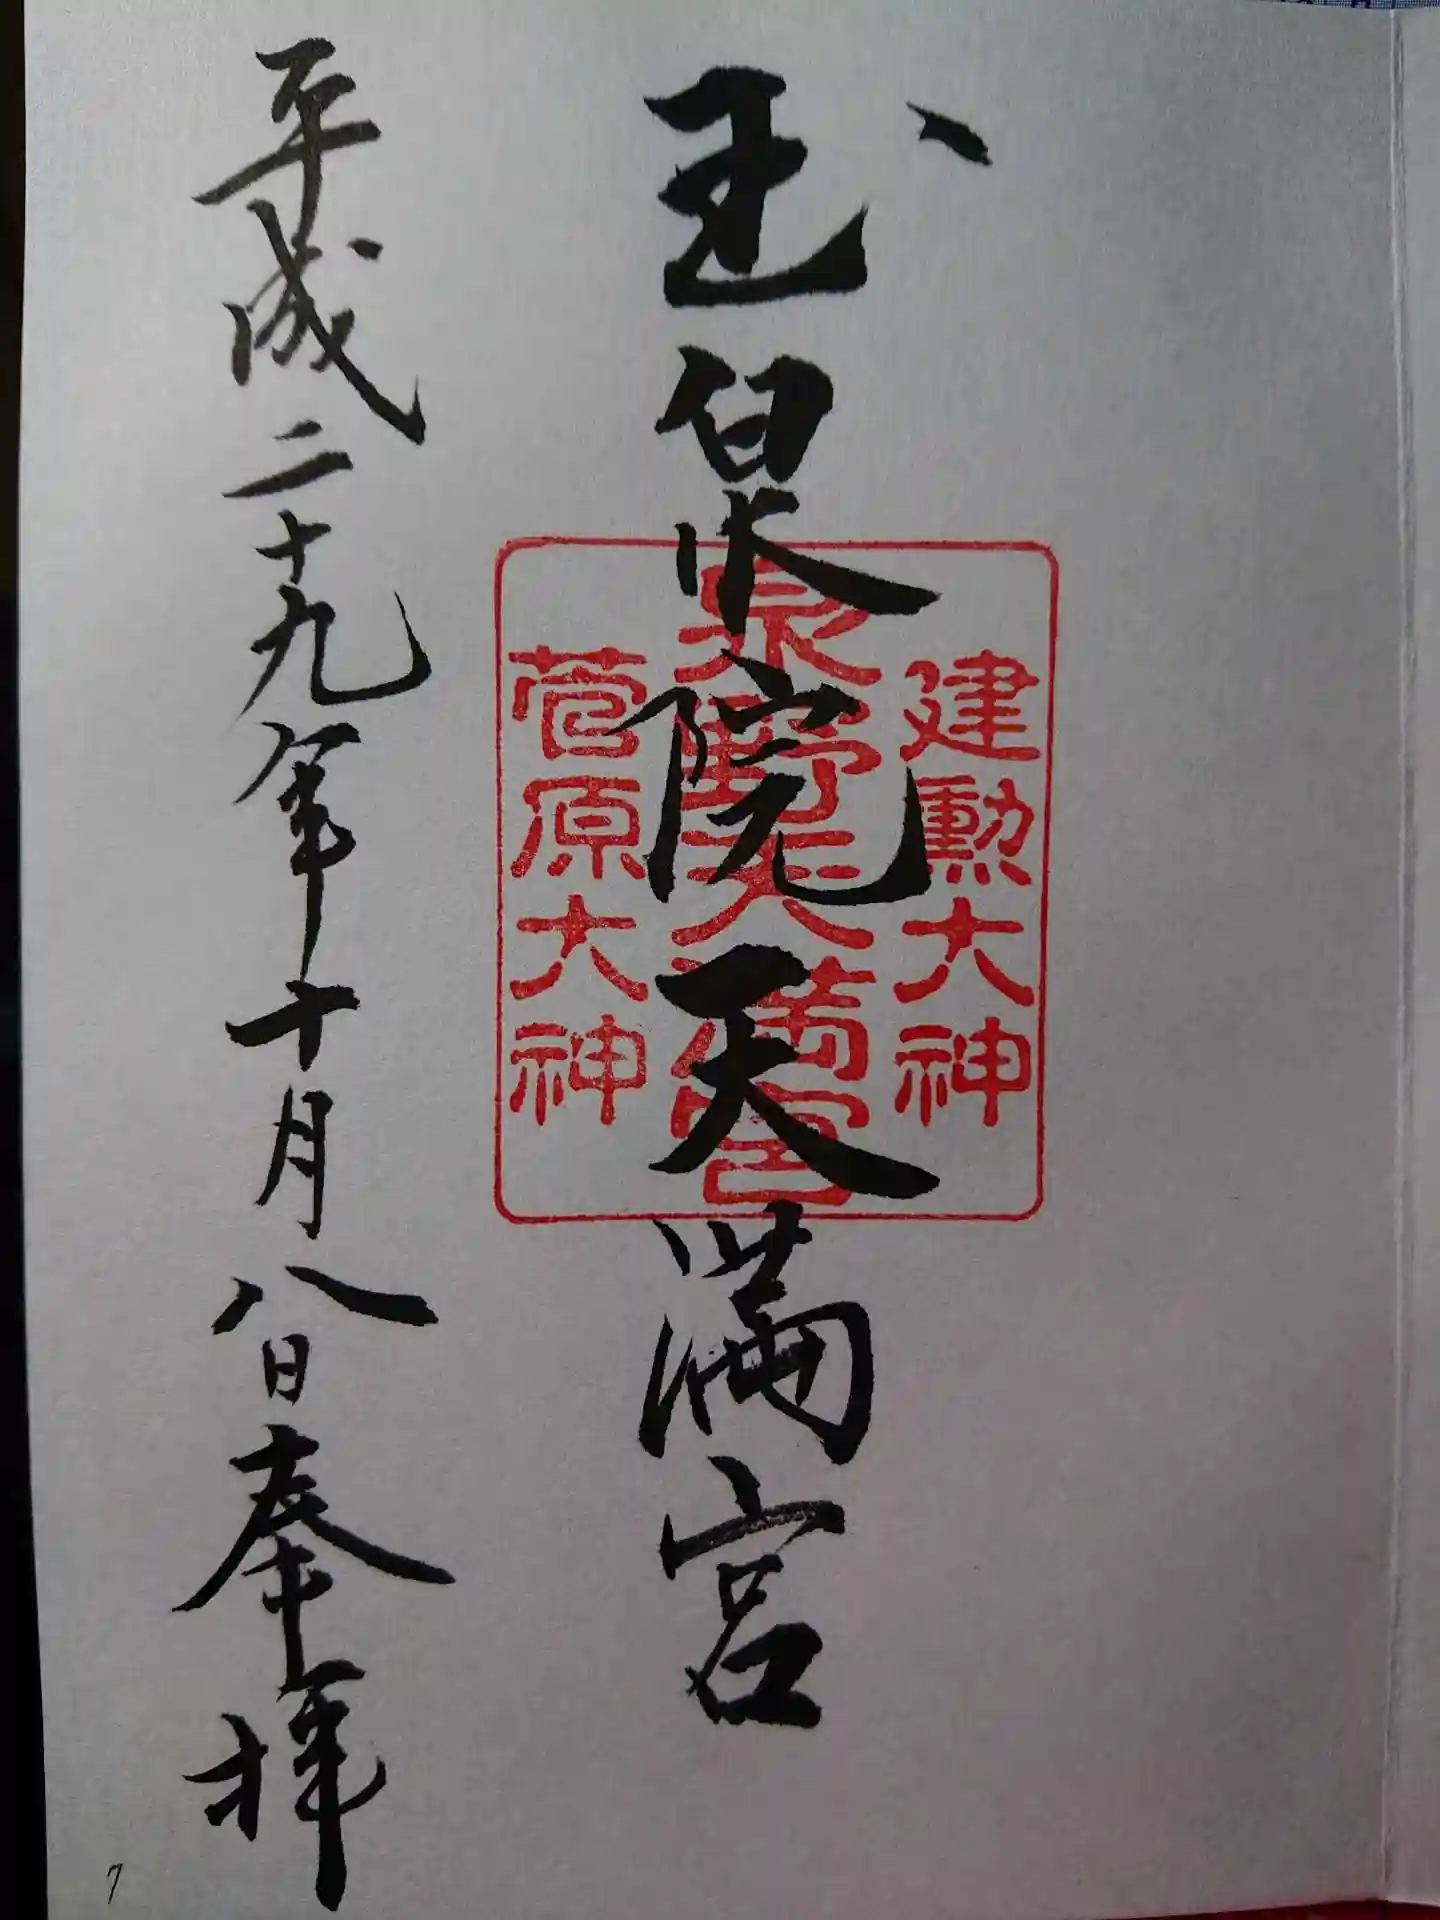 玉泉院天満宮
建勲大神
泉野天満宮
菅原大神
平成二十九年十月八日奉拝
7